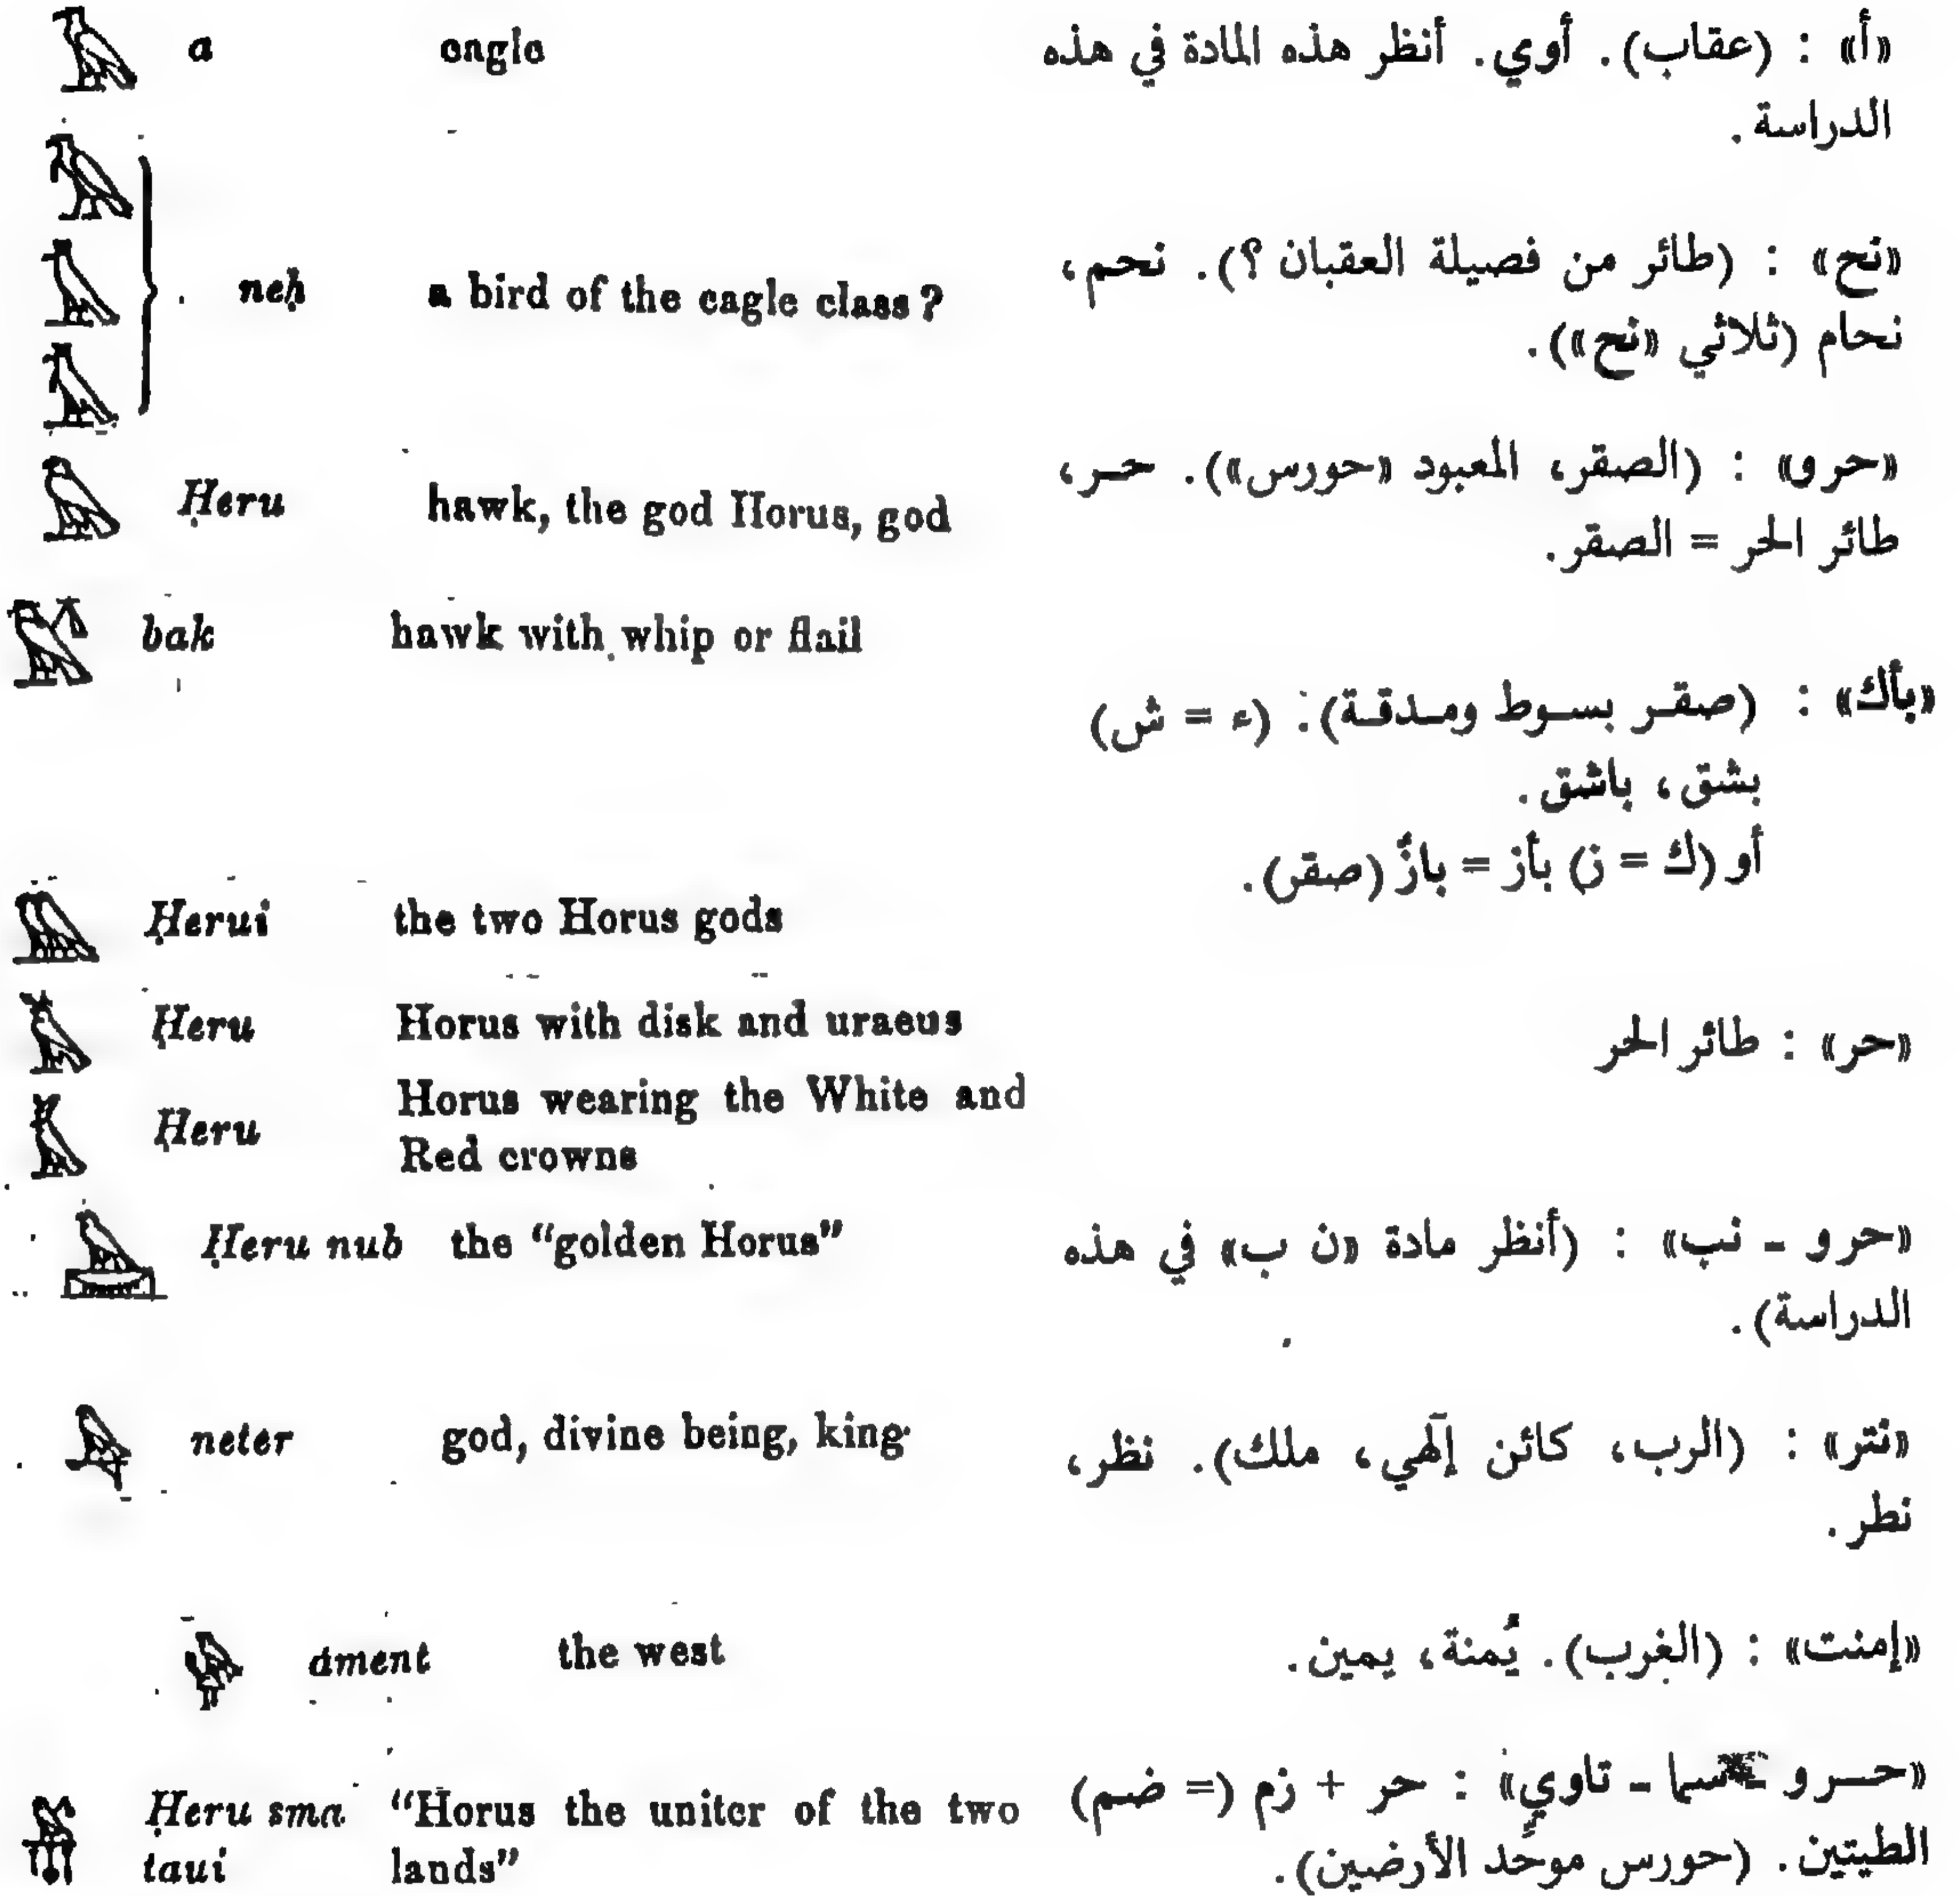 a eagle «أ» : (عقاب). أوي. أنظر هذه المادة في هذه
الدراسة.
neḥ a bird of the eagle class? «نح» : (طائر من فصيلة العقبان ؟). نحم،
نحام (ثلاثي «نح»).
Ḥeru hawk, the god Horus, god «حرو» : (الصقر، المعبود «حورس»). حر،
طائر الحر = الصقر.
bak hawk with whip or flail
«بأك» : (صقر بسوط ومدقة). (ء = ش)
بشق، باشق.
أو (ك = ز) بأز = بازٌ (صقر).
Ḥerui the two Horus gods
Ḥeru Horus with disk and uraeus «حر» : طائر الحر
Ḥeru Horus wearing the White and
Red crowns
Ḥeru nub the “golden Horus” «حرو - نب» : (أنظر مادة «ن ب» في هذه
الدراسة).
neter god, divine being, king «نتر» : (الرب، كائن إلٓهي، ملك). نظر،
نطر.
ȧment the west «إمنت» : (الغرب). يُمنة، يمين.
Ḥeru sma “Horus the uniter of the two «حرو - سما - تاوي» : حر + زم (= ضم)
taui lands” الطيتين. (حورس موحِّد الأرضين).